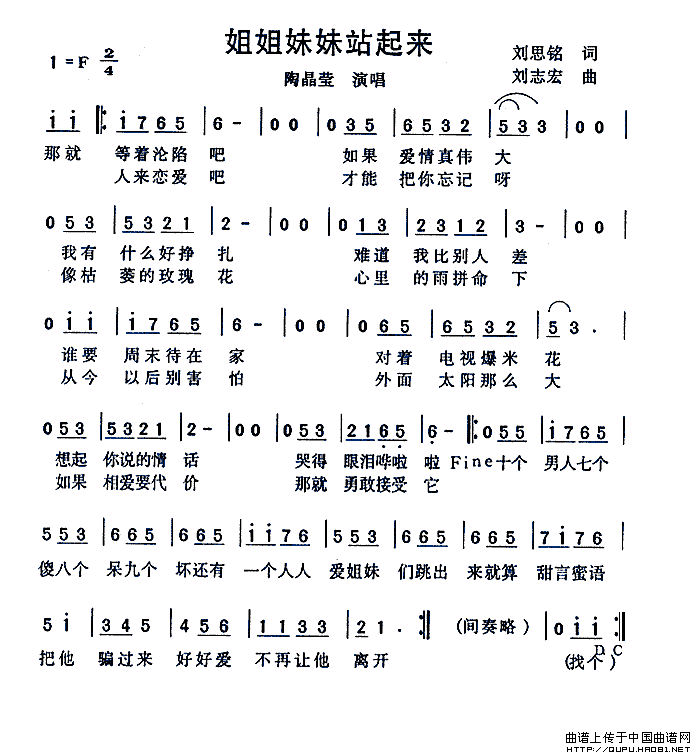 姐姐妹妹站起来
1=F 2/4
刘思铭 词
陶晶莹 演唱
刘志宏 曲
i i |: i 7 6 5 | 6 - | 0 0 | 0 3 5 | 6 5 3 2 | 5 3 3 | 0 0 |
那就 等着沦陷 吧 如果 爱情真伟 大
人来恋爱 吧 才能 把你忘记 呀
0 5 3 | 5 3 2 1 | 2 - | 0 0 | 0 1 3 | 2 3 1 2 | 3 - | 0 0 |
我有 什么好挣 扎 难道 我比别人 差
像枯 萎的玫瑰 花 心里 的雨拼命 下
0 i i | i 7 6 5 | 6 - | 0 0 | 0 6 5 | 6 5 3 2 | 5 3 . |
谁要 周末待在 家 对着 电视爆米 花
从今 以后别害 怕 外面 太阳那么 大
0 5 3 | 5 3 2 1 | 2 - | 0 0 | 0 5 3 | 2 1 6 5 | 6 - |: 0 5 5 | i 7 6 5 |
想起 你说的情 话 哭得 眼泪哗啦 啦 Fine 十个 男人七个
如果 相爱要代 价 那就 勇敢接受 它
5 5 3 | 6 6 5 | 6 6 5 | i i 7 6 | 5 5 3 | 6 6 5 | 6 6 5 | 7 i 7 6 |
傻八个 呆九个 坏还有 一个人人 爱姐妹 们跳出 来就算 甜言蜜语
5 i | 3 4 5 | 4 5 6 | 1 1 3 3 | 2 1 . :| (间奏略) | 0 i i :|
D C
把他 骗过来 好好爱 不再让他 离开 (找个)
曲谱上传于中国曲谱网
HTTP://QUPU.HAO81.NET